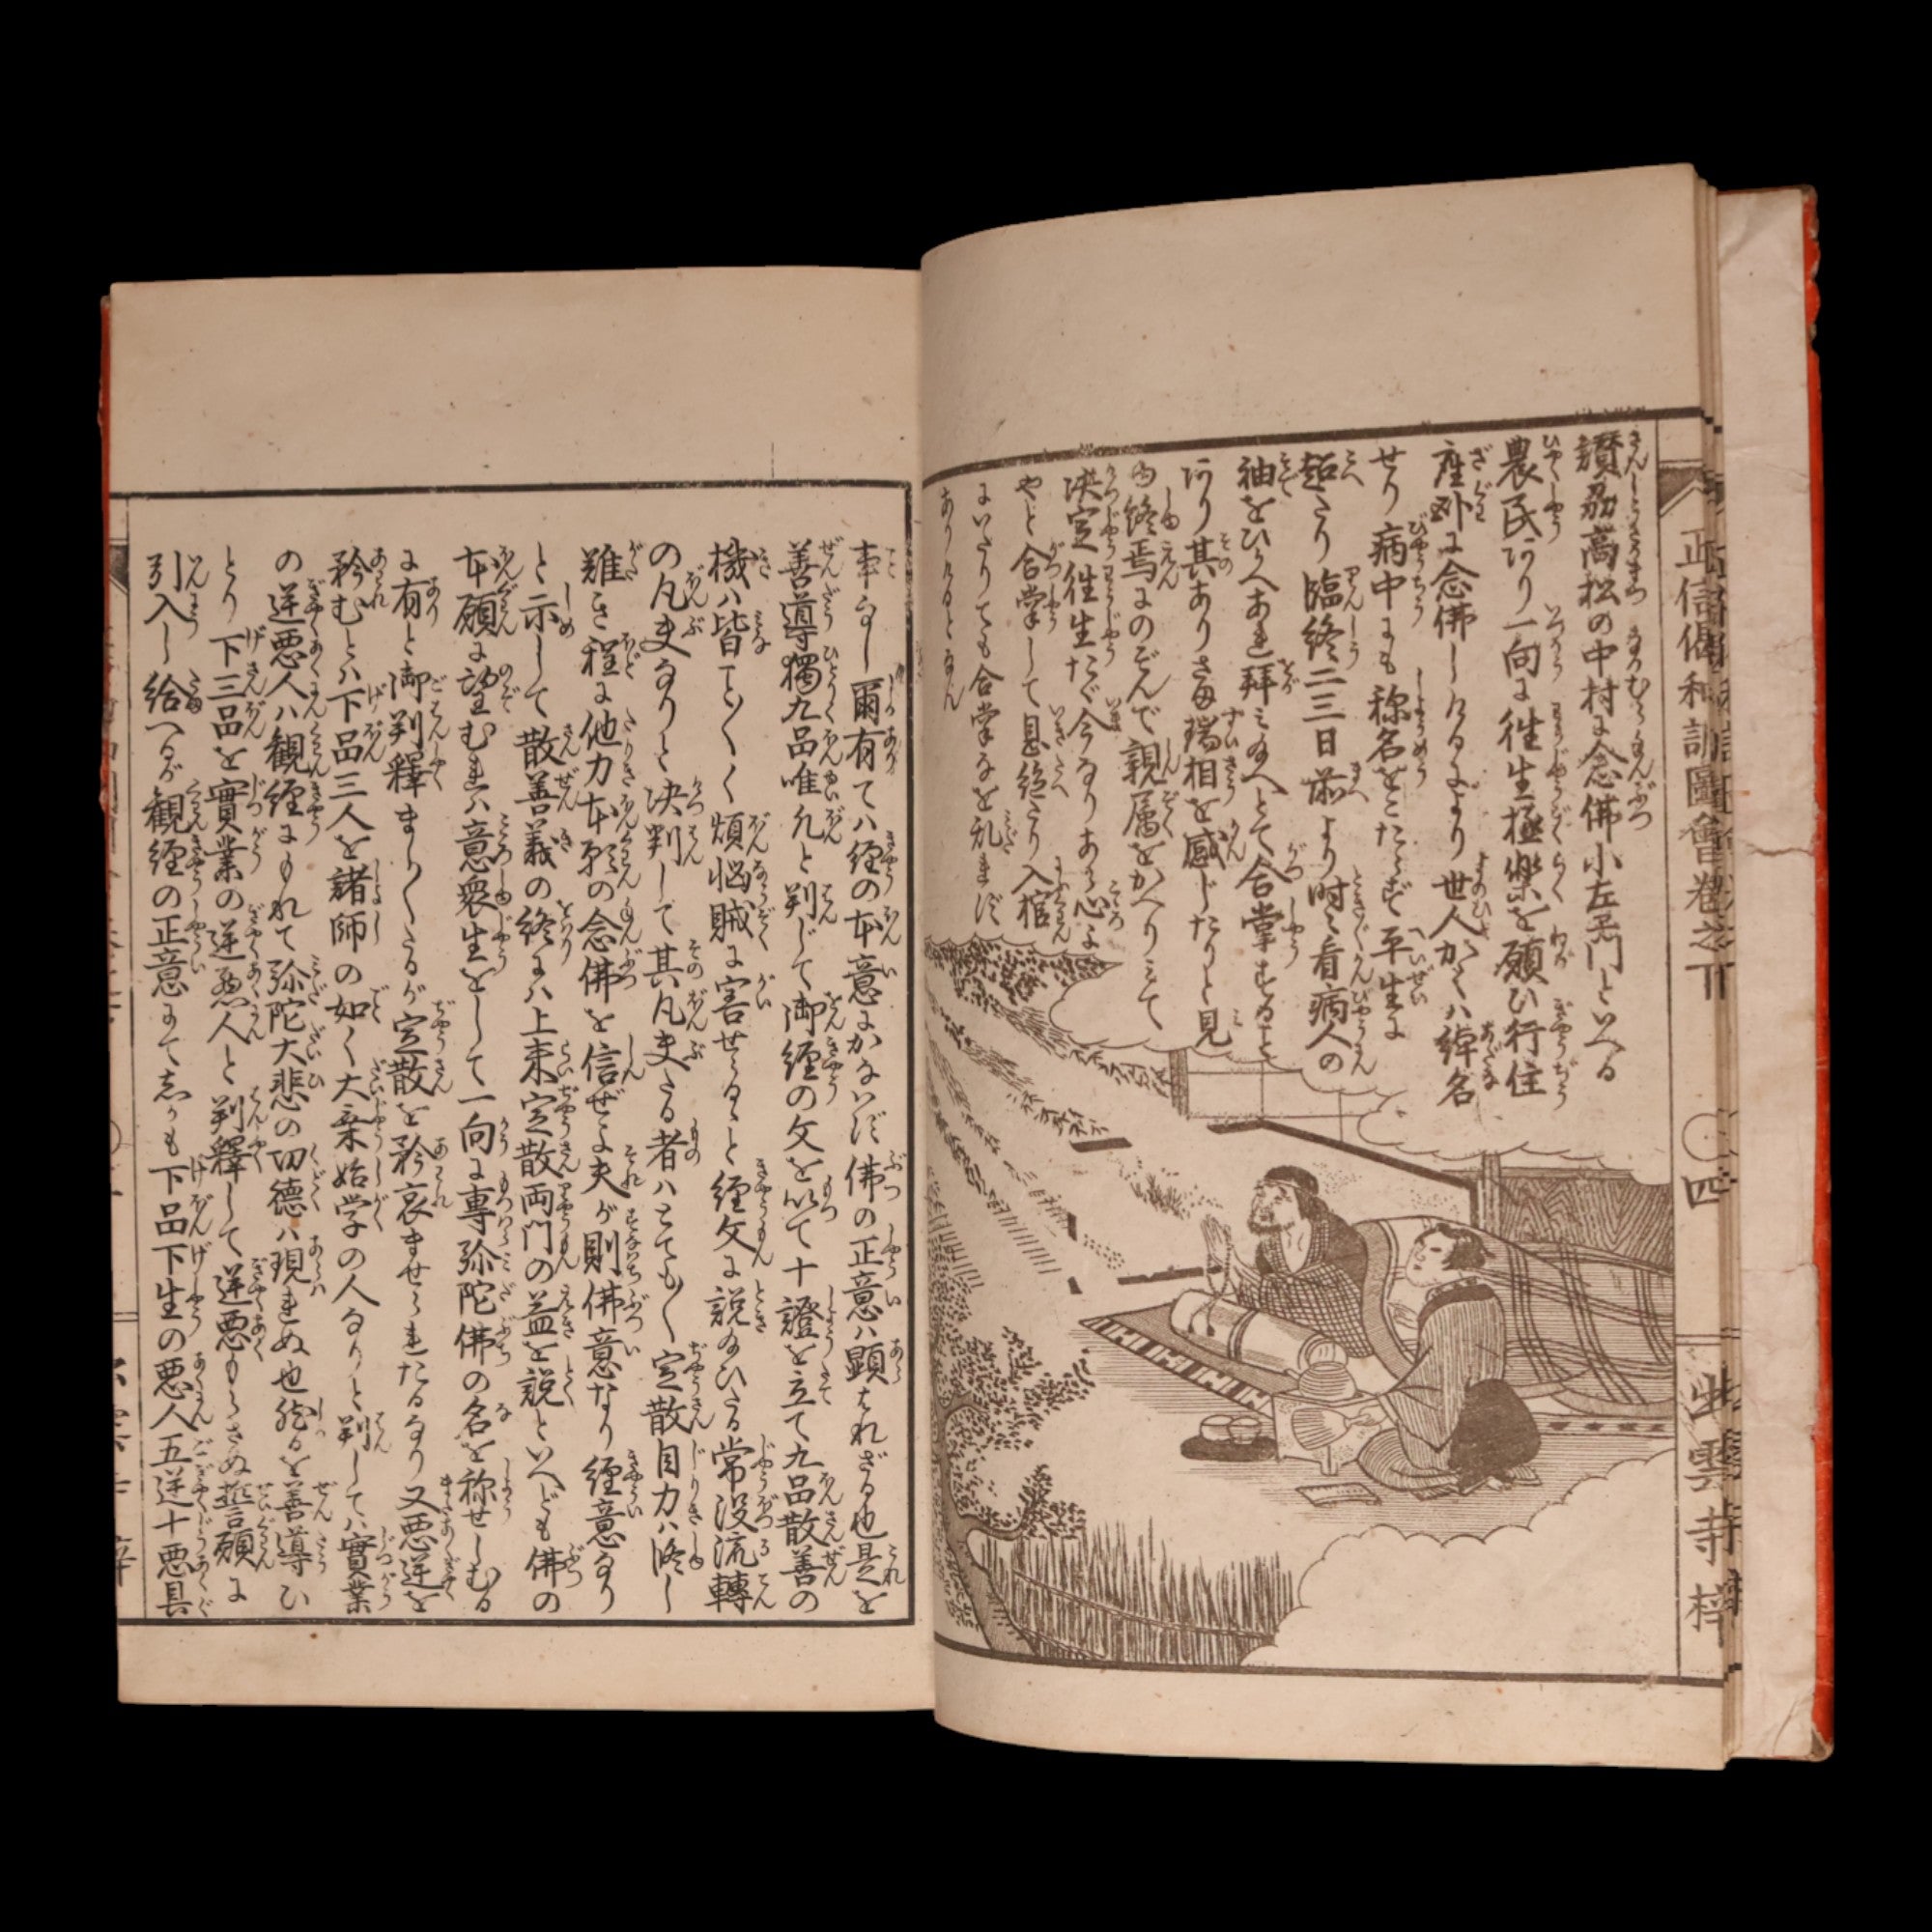 正信偈和訓圖會巻之下 〇四 出雲寺梓
讃刕高松の中村に念佛小左衛門といへる
農民あり一向に往生極樂を願ひ行住
座臥に念佛しけるにより世人かくハ綽名
せり病中にも称名をこたらず平生に
超たり臨終二三日前より時々看病人の
袖をひかへあれ拝み給へとて合掌すること
あり其ありさま瑞相を感じたりと見
ゆ終焉にのぞんで親属をかへりみて
决定往生たゞ今なりあら心よ
やと合掌して息絶たり入棺
にいたりても合掌を乱れず
ありけるとなん
事なし爾有てハ経の本意にかないず佛の正意ハ顕はれざる也是を
善導獨九品唯凡と判じて御経の文を以て十證を立て九品散善の
機ハ皆こと〲く煩悩賊に害せらるゝと経文に説給ひたる常没流轉
の凡夫なりと决判して其凡夫たる者ハとても〱定散自力ハ修し
難き程に他力本願の念佛を信ぜよ夫が則佛意なり経意なり
と示して散善義の終にハ上来定散両門の益を説といへども佛の
本願に望むれハ意衆生をして一向に専弥陀佛の名を称せしむる
に有と御判釋まし〱たるが定散を矜哀ませられたるなり又悪逆を
矜むとハ下品三人を諸師の如く大乗始学の人なりと判してハ實業
の逆悪人ハ観経にもれて弥陀大悲の切徳ハ現れぬ也然るを善導ひ
とり下三品を實業の逆悪人と判釋して逆悪もらさぬ誓願に
引入し給へるが観経の正意にて志かも下品下生の悪人五逆十悪具